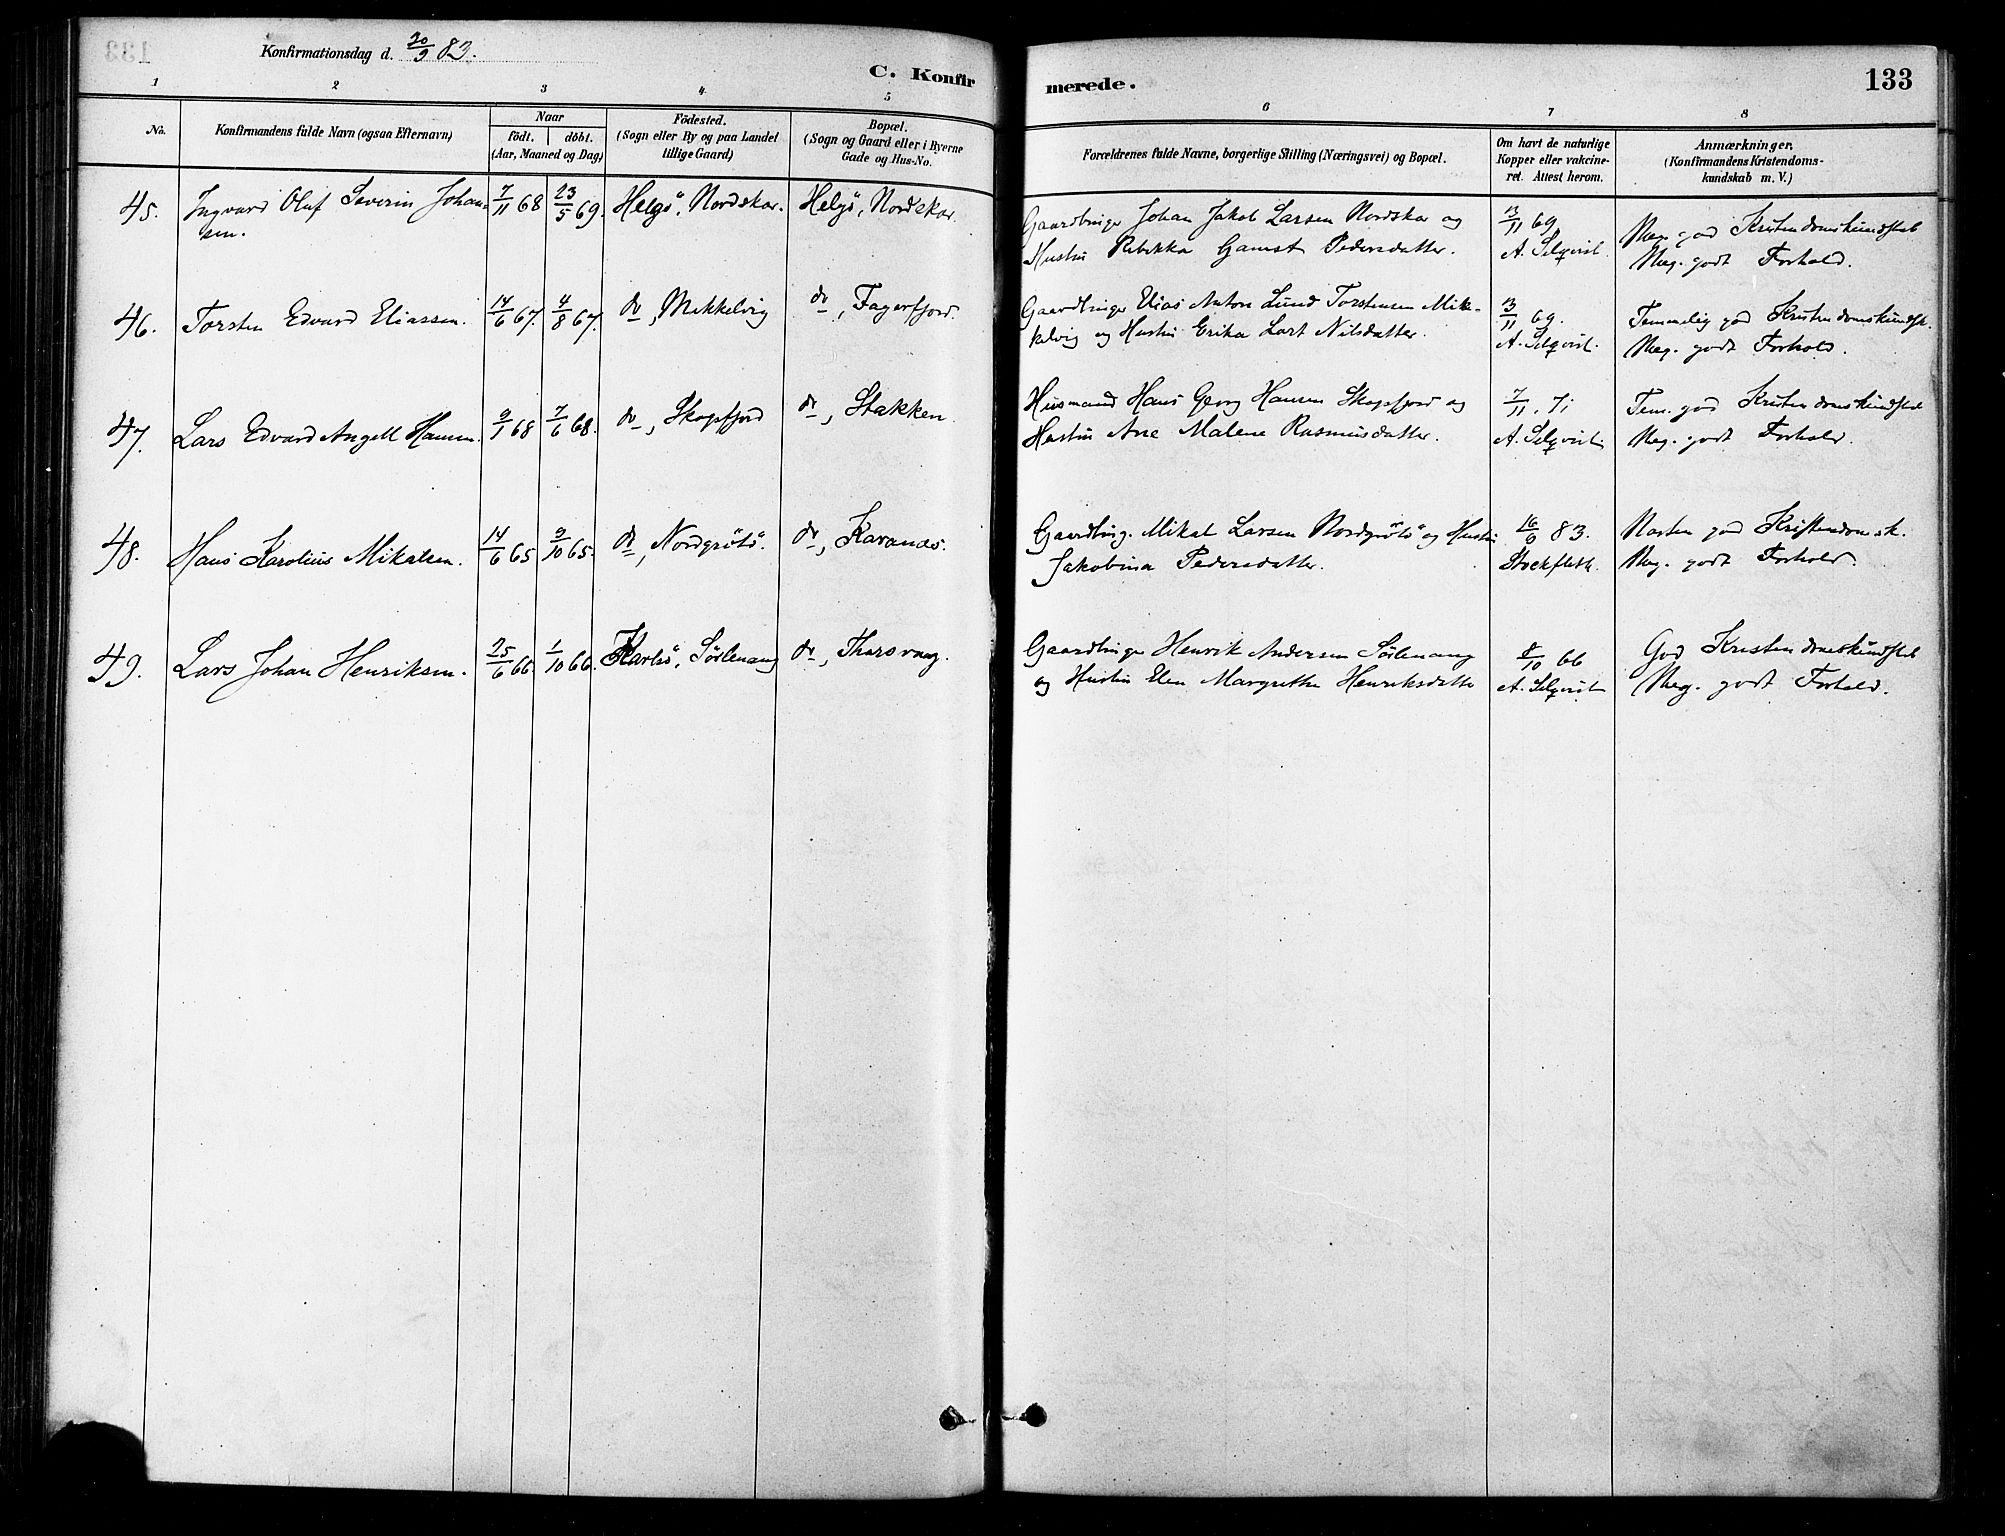 133
Konfirmationsdag d. 30/9 83.
C. Konfirmerede.
133
1 2 3 4 5 6 7 8
No.
Konfirmandens fulde Navn (ogsaa Efternavn)
Naar
födt. döbt.
(Aar, Maaned og Dag)
Födested.
(Sogn eller By og paa Landet
tillige Gaard)
Bopæl.
(Sogn og Gaard eller i Byerne
Gade og Hus-No.
Forældrenes fulde Navne, borgerlige Stilling (Næringsvei) og Bopæl.
Om havt de naturlige
Kopper eller vakcine-
ret. Attest herom.
Anmærkninger.
(Konfirmandens Kristendoms-
kundskab m. V.)
45. Ingvard Oluf Severin Johan-
sen.
7/11 68 23/5 69. Helgö, Nordskar. Helgö, Nordskar.
Gaardbruger Johan Jakob Larsen Nordskar og
Hustru Rebekka Gamst Pedersdatter.
13/11 69
A. Selqvist.
Meg. god Kristendomskundskab
Meg. godt Forhold.
46. Torsten Edvard Eliassen. 14/6 67. 4/8 67. do, Mikkelvig do, Fagerfjord.
Gaardbruger Elias Anton Lund Torstensen Mik-
kelvig og Hustru Erika Lart Nilsdatter.
13/11 69.
A. Selqvist.
Temmelig god Kristendomskundsk.
Meg. godt Forhold.
47. Lars Edvard Angell Hansen. 9/1 68 7/6 68. do, Skogsfjord do, Stakken.
Husmand Hans Georg Hansen Skogsfjord og
Hustru Ane Malene Rasmusdatter.
7/11. 71
A. Selqvist.
Tem. god Kristendomskundskab
Meg. godt Forhold.
48. Hans Karolius Mikalsen. 14/6 65 9/10 65. do, Nordgrötö. do, Kavanes.
Gaardbrug. Mikal Larsen Nordgrötö og Hustru
Jakobina Pedersdatter.
16/6 83.
Stockfleth.
Næsten god Kristendomsk.
Meg. godt Forhold.
49. Lars Johan Henriksen. 25/6 66 1/10 66. Karlsö, Sörlenang do, Thorsvaag.
Gaardbruger Henrik Andersen Sörlenang
og Hustru Elen Margrethe Henriksdatter
8/10 66
A. Selqvist
God Kristendomskundskab
Meg. godt Forhold.